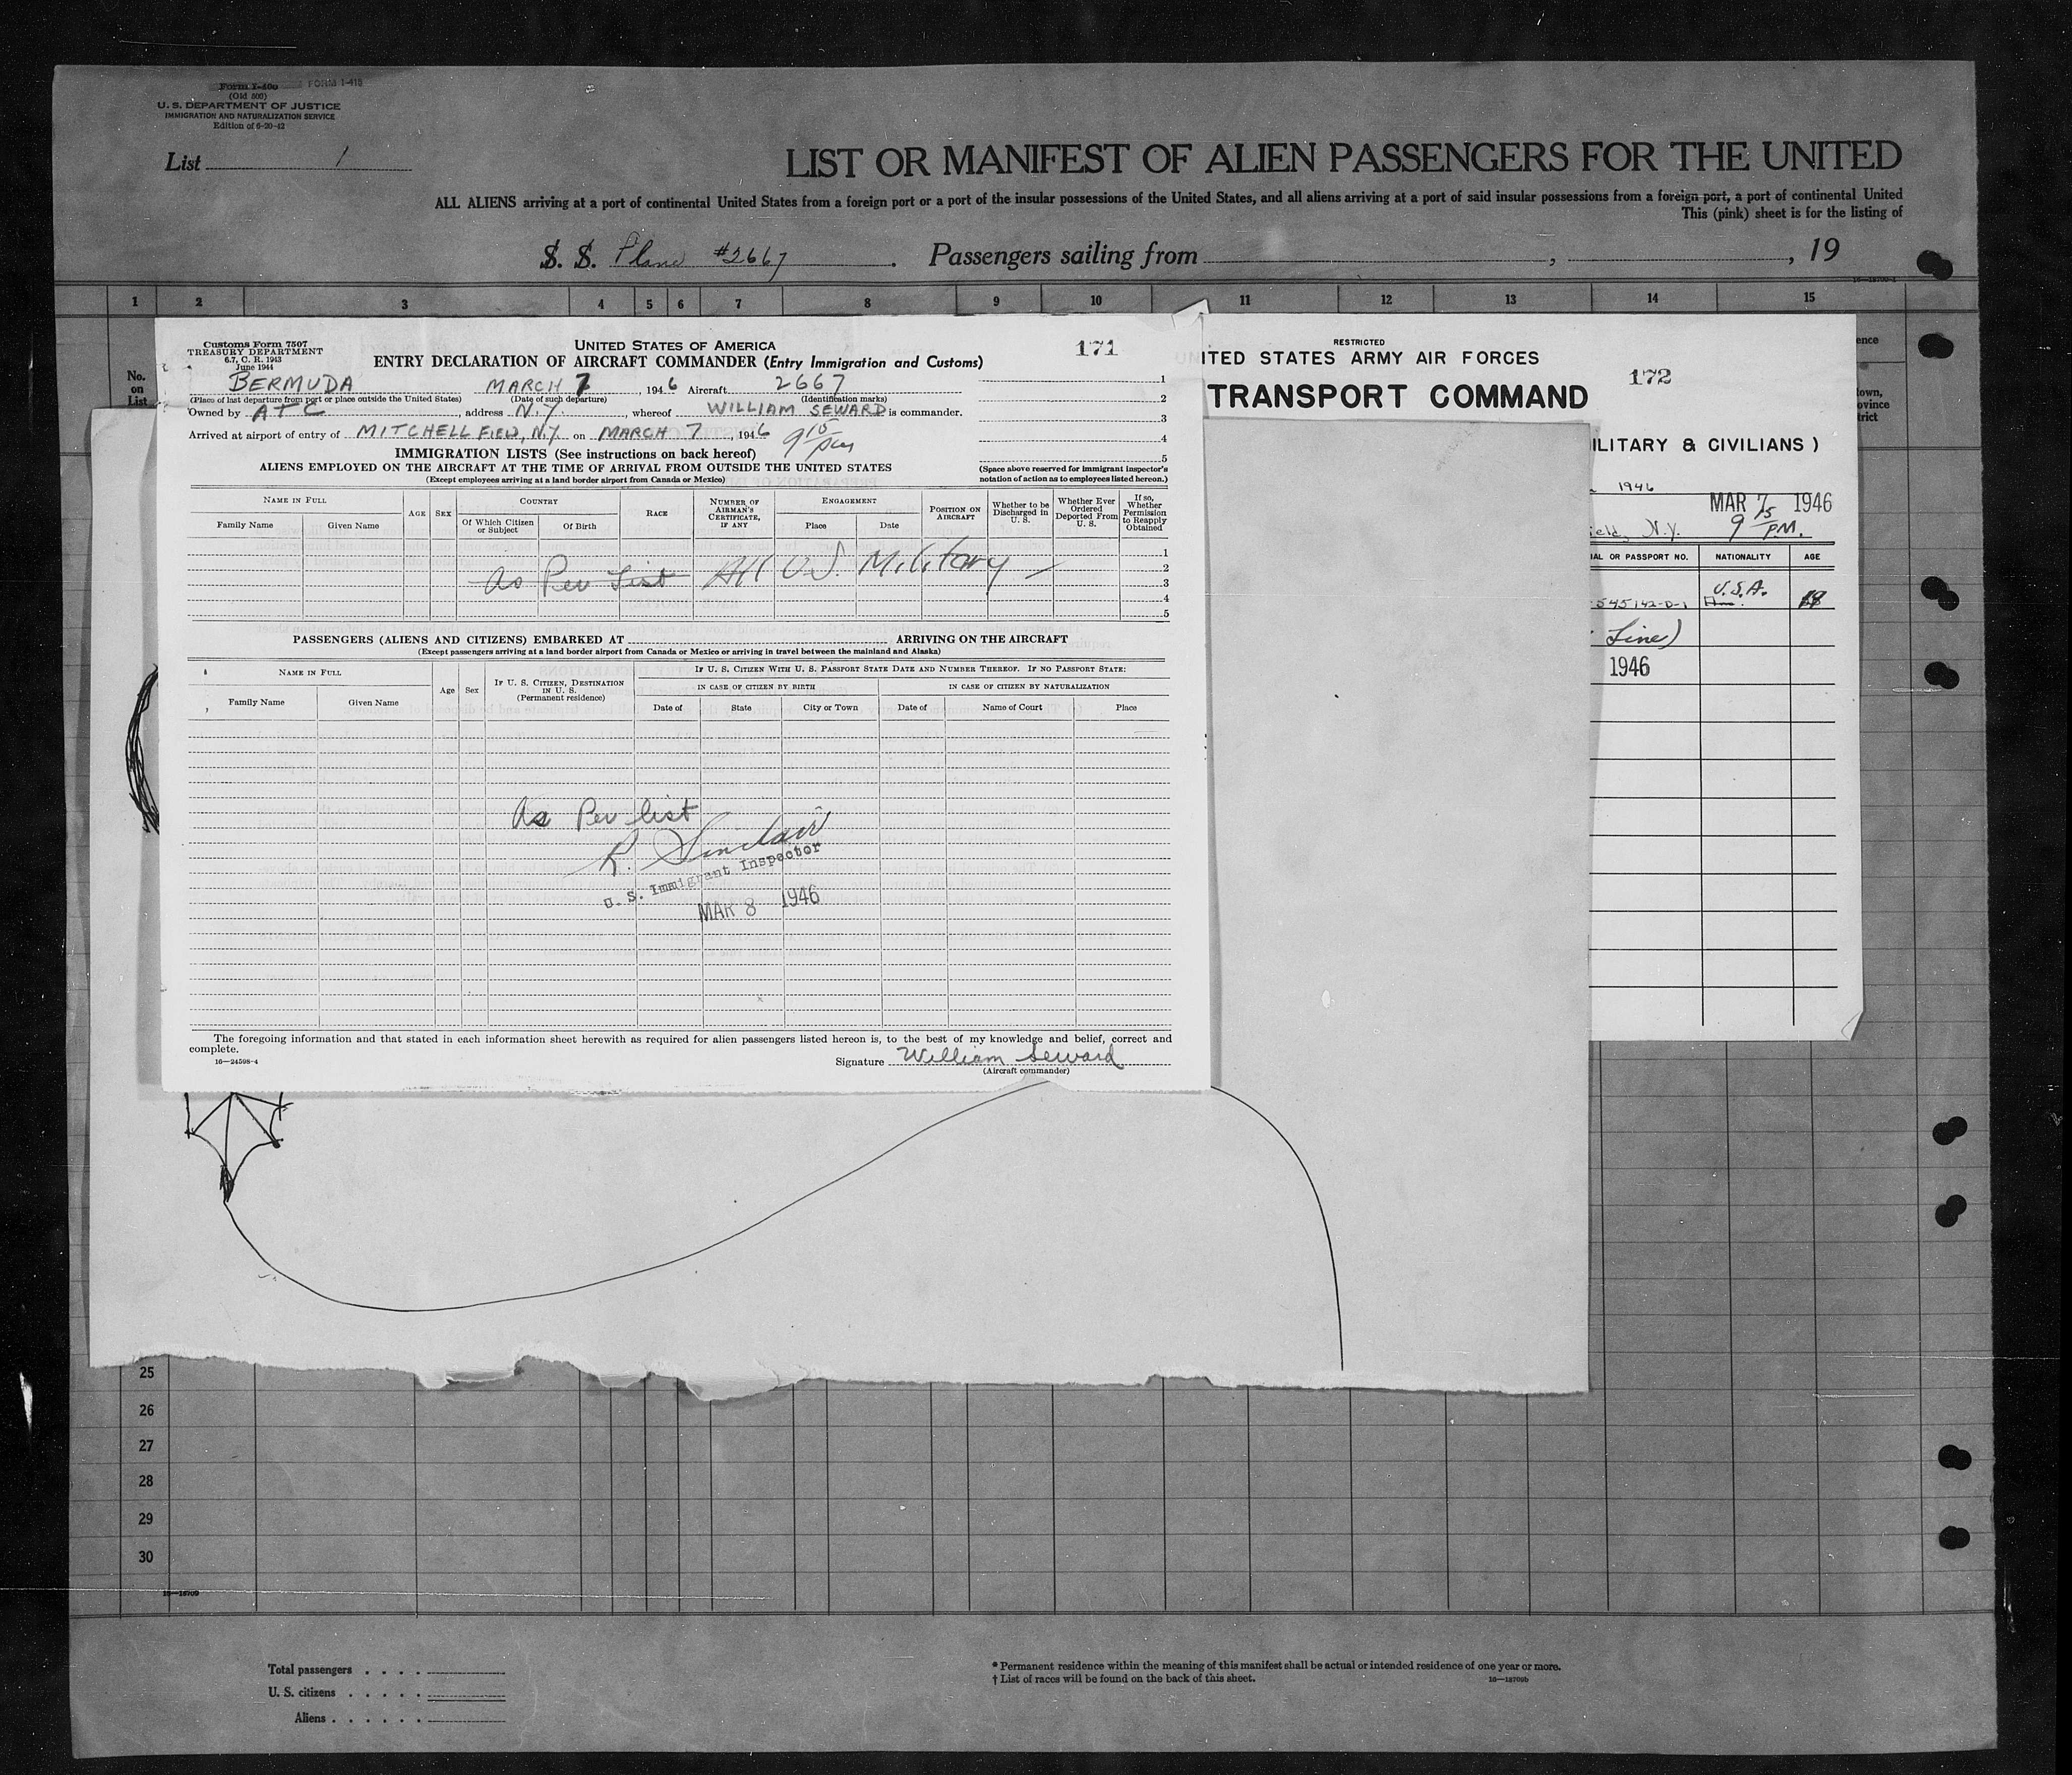 Form I-400 FORM I-415
(Old 500)
U. S. DEPARTMENT OF JUSTICE
IMMIGRATION AND NATURALIZATION SERVICE
Edition of 6-20-42
List 1
LIST OR MANIFEST OF ALIEN PASSENGERS FOR THE UNITED
ALL ALIENS arriving at a port of continental United States from a foreign port or a port of the insular possessions of the United States, and all aliens arriving at a port of said insular possessions from a foreign port, a port of continental United
This (pink) sheet is for the listing of
S. S. Plane #2667. Passengers sailing from , , 19
1 2 3 4 5 6 7 8 9 10 11 12 13 14 15
No.
on
List
Customs Form 7507
TREASURY DEPARTMENT
6.7, C. R. 1943
June 1944
UNITED STATES OF AMERICA
ENTRY DECLARATION OF AIRCRAFT COMMANDER (Entry Immigration and Customs)
171
BERMUDA MARCH 7, 1946 Aircraft 2667
(Place of last departure from port or place outside the United States) (Date of such departure) (Identification marks)
Owned by ATC, address N.Y., whereof WILLIAM SEWARD is commander.
Arrived at airport of entry of MITCHELL FIELD, N.Y. on MARCH 7, 1946 9 15 pm
1
2
3
4
5
IMMIGRATION LISTS (See instructions on back hereof)
ALIENS EMPLOYED ON THE AIRCRAFT AT THE TIME OF ARRIVAL FROM OUTSIDE THE UNITED STATES
(Except employees arriving at a land border airport from Canada or Mexico)
(Space above reserved for immigrant inspector's
notation of action as to employees listed hereon.)
NAME IN FULL
Family Name Given Name
AGE SEX
COUNTRY
Of Which Citizen or Subject Of Birth
RACE
NUMBER OF AIRMAN'S CERTIFICATE, IF ANY
ENGAGEMENT
Place Date
POSITION ON AIRCRAFT
Whether to be Discharged in U. S.
Whether Ever Ordered Deported From U. S.
If so, Whether Permission to Reapply Obtained
1
2
3
4
5
As Per List All U.S. Military
PASSENGERS (ALIENS AND CITIZENS) EMBARKED AT ARRIVING ON THE AIRCRAFT
(Except passengers arriving at a land border airport from Canada or Mexico or arriving in travel between the mainland and Alaska)
NAME IN FULL
Family Name Given Name
Age Sex
IF U. S. CITIZEN, DESTINATION IN U. S.
(Permanent residence)
IF U. S. CITIZEN WITH U. S. PASSPORT STATE DATE AND NUMBER THEREOF. IF NO PASSPORT STATE:
IN CASE OF CITIZEN BY BIRTH IN CASE OF CITIZEN BY NATURALIZATION
Date of State City or Town Date of Name of Court Place
As Per list
R. Sinclair
U. S. Immigrant Inspector
MAR 8 1946
The foregoing information and that stated in each information sheet herewith as required for alien passengers listed hereon is, to the best of my knowledge and belief, correct and
complete.
16—24598-4
Signature William Seward
(Aircraft commander)
RESTRICTED
UNITED STATES ARMY AIR FORCES
172
TRANSPORT COMMAND
ILITARY & CIVILIANS )
1946
MAR 7 1946
9 15 P.M.
ield, N.Y.
IAL OR PASSPORT NO. NATIONALITY AGE
545142-D-1 U.S.A.
Line)
1946
ence
own,
ovince
trict
25
26
27
28
29
30
16—18709
Total passengers
U. S. citizens
Aliens
* Permanent residence within the meaning of this manifest shall be actual or intended residence of one year or more.
† List of races will be found on the back of this sheet.
16—18709b